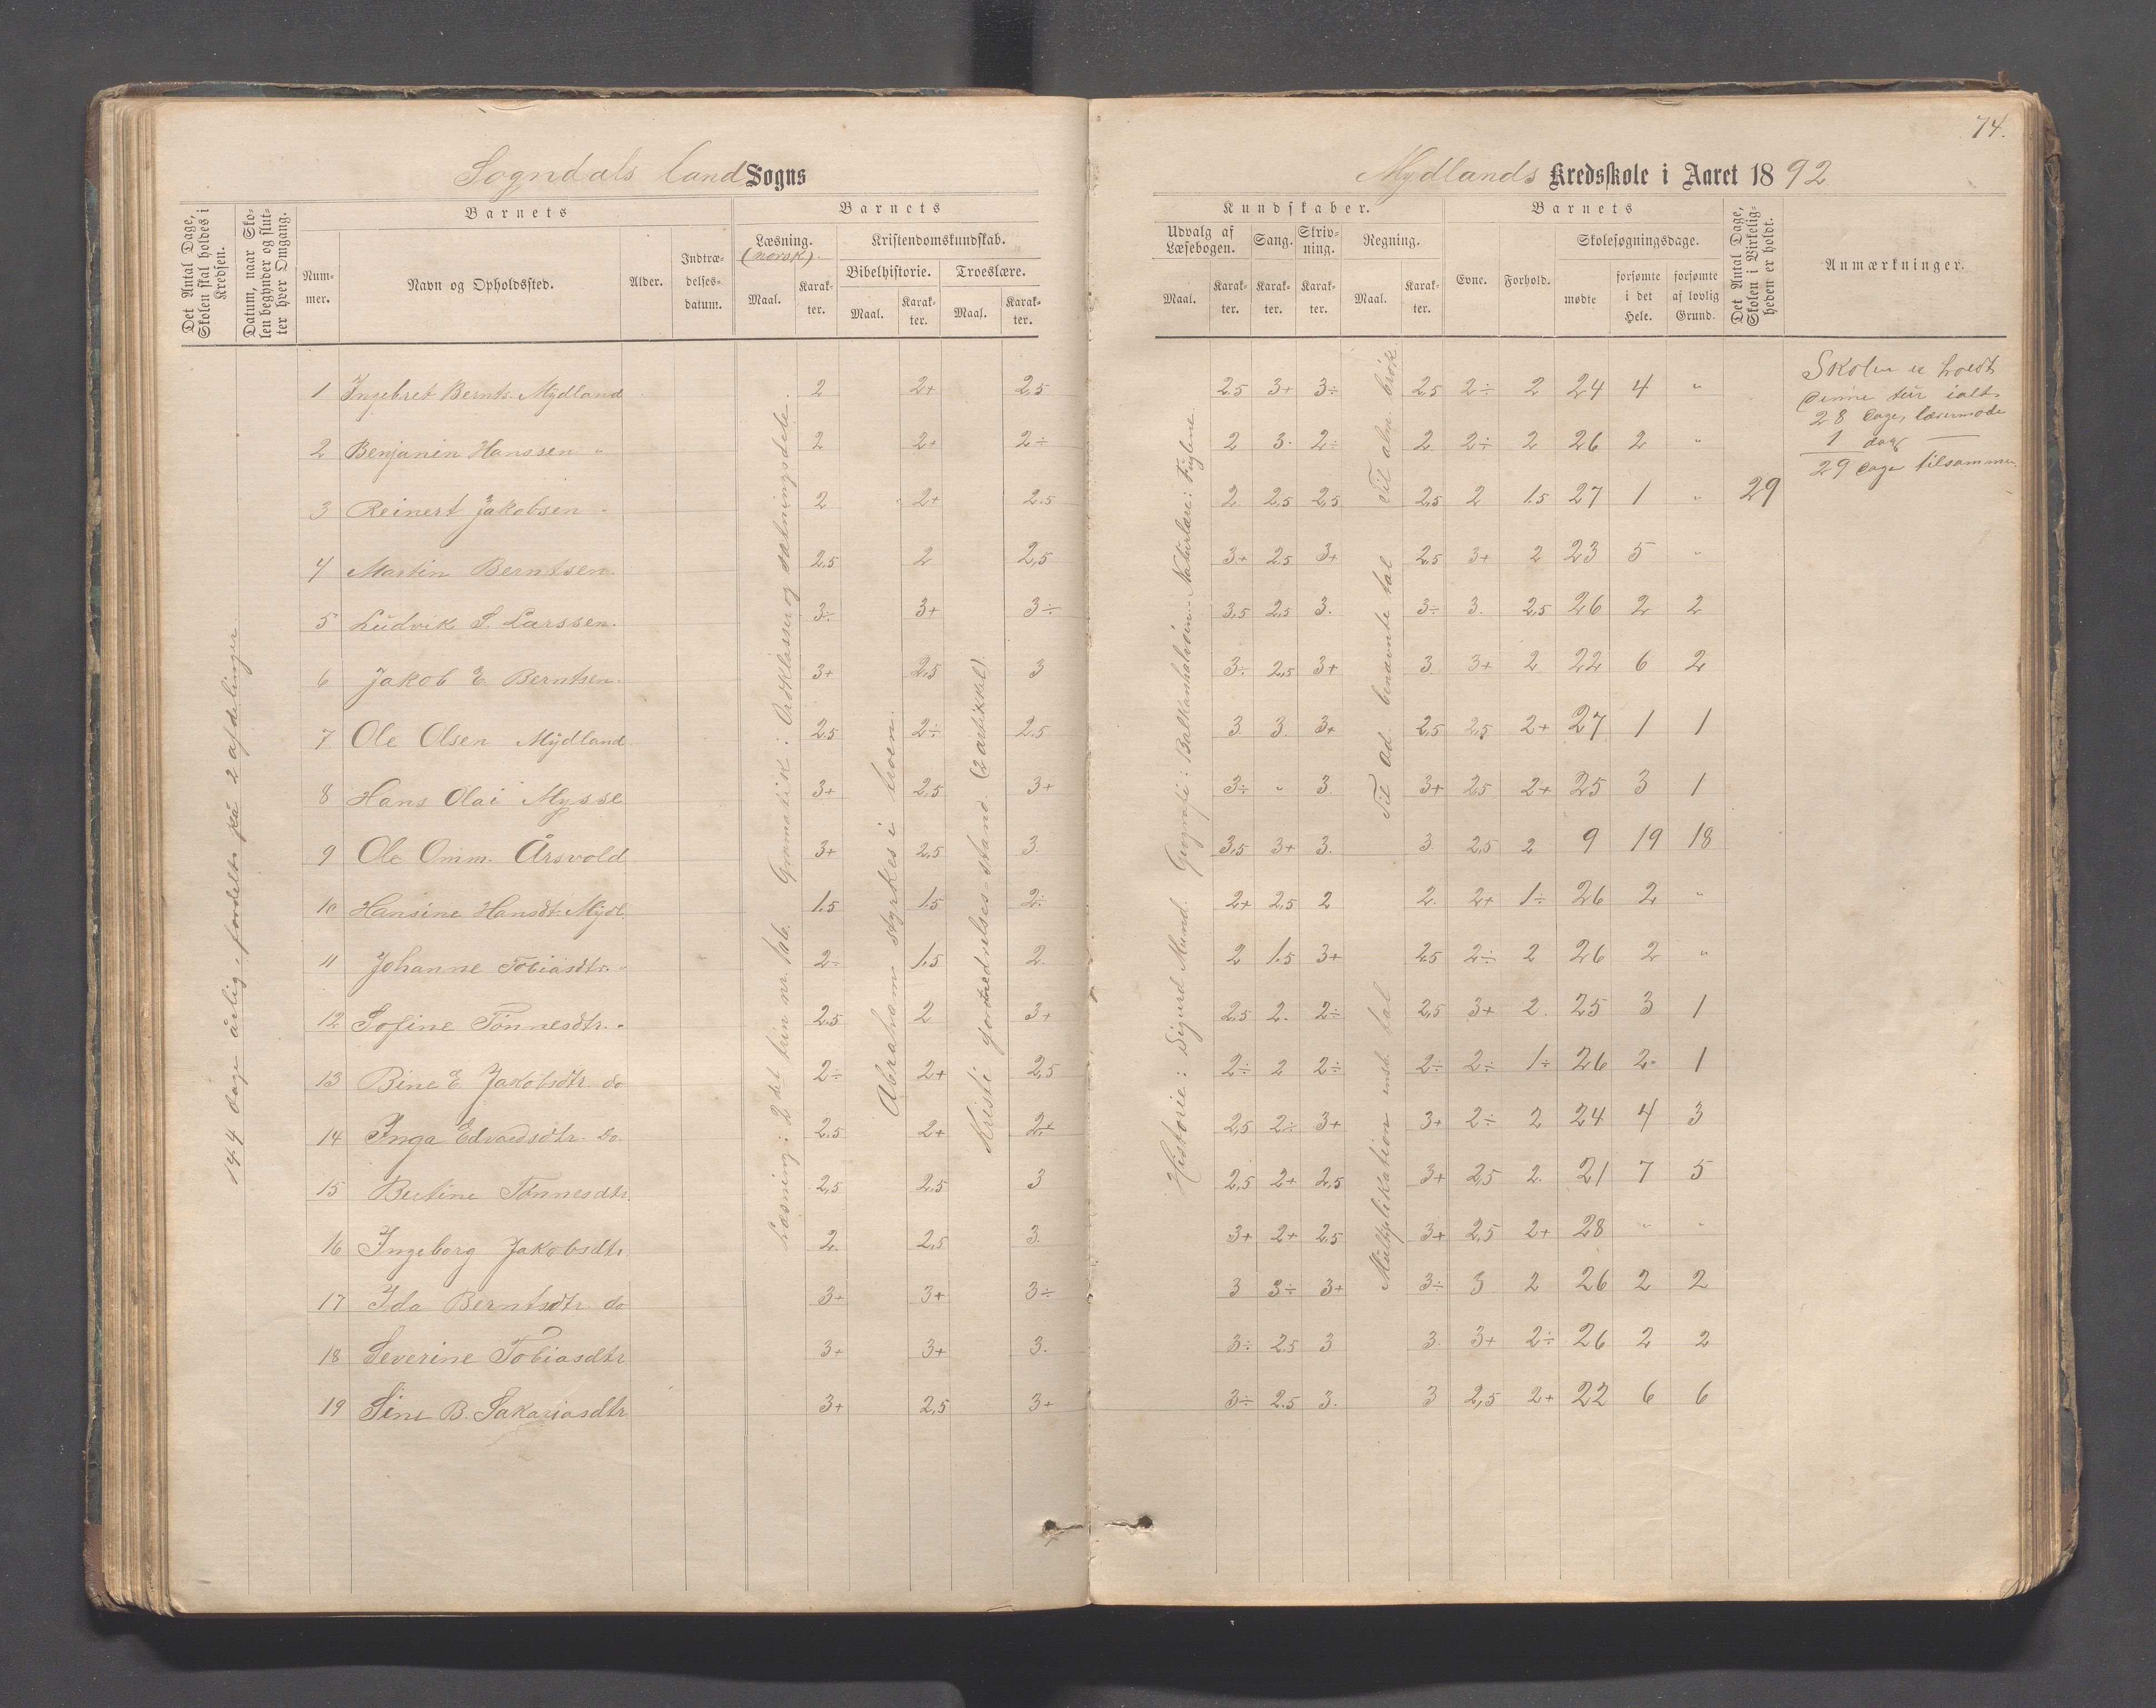 74.
Sogndals land Sogns
Mydlands Kredsskole i Aaret 1892
Det Antal Dage, Skolen skal holdes i Kredsen.
Datum, naar Skolen begynder og slutter hver Omgang.
Barnets
Nummer.
Navn og Opholdssted.
Alder.
Indtrædelsesdatum.
Barnets
Læsning. (norsk).
Maal.
Karakter.
Kristendomskundskab.
Bibelhistorie.
Maal.
Karakter.
Troeslære.
Maal.
Karakter.
Kundskaber.
Udvalg af Læsebogen.
Maal.
Karakter.
Sang.
Karakter.
Skrivning.
Karakter.
Regning.
Maal.
Karakter.
Barnets
Evne.
Forhold.
Skolesøgningsdage.
mødte
forsømte i det Hele.
forsømte af lovlig Grund.
Det Antal Dage, Skolen i Virkeligheden er holdt.
Anmærkninger.
144 dage årlig, fordelt på 2 afdelinger.
Læsning: 2det trin nr. 106. Gramatik: Ordklasser og sætningsdele.
Abraham styrkes i troen.
Kristi fornedrelses-stand. (2 artikkel).
Historie: Sigurd Mund. Geografi: Balkanhalvøen. Naturlære: Fuglene.
Multiplikation ens. tal
Til Ad. benævnte tal
Til alm. brøk.
1 Ingebret Bernts. Mydland 2 2+ 2,5 2,5 3+ 3÷ 2,5 2÷ 2 24 4 "
2 Benjamin Hanssen " 2 2+ 2÷ 2 3. 2÷ 2 2÷ 2 26 2 "
3 Reinert Jakobsen " 2 2+ 2.5 2 2,5 2,5 2,5 2 1.5 27 1 " 29
4 Martin Berntsen. 2,5 2 2,5 3+ 2.5 3+ 2,5 3+ 2 23 5 "
5 Ludvik S. Larssen. 3÷ 3+ 3÷ 3,5 2,5 3. 3÷ 3. 2,5 26 2 2
6 Jakob E Berntsen. 3+ 2,5 3 3÷ 2,5 3+ 3. 3+ 2 22 6 2
7 Ole Olsen Mydland 2,5 2÷ 2.5 3. 3. 3+ 2,5 2,5 2+ 27 1 1
8 Hans Olai Mysse 3+ 2,5 3+ 3÷ " 3. 3+ 2,5 2+ 25 3 1
9 Ole Omm. Årsvold 3+ 2,5 3. 3,5 3+ 3. 3. 2,5 2 9 19 18
10 Hansine Hansdt. Mydl. 1.5 1.5 2÷ 2+ 2,5 2 2. 2+ 1÷ 26 2 "
11 Johanne Tobiasdtr. " 2÷ 1.5 2. 2 1.5 3+ 2.5 2÷ 2 26 2 "
12 Sofine Tønnesdtr. " 2.5 2 3+ 2.5 2. 2÷ 2,5 3+ 2. 25 3 1
13 Bine E Jakobsdtr. do 2÷ 2+ 2,5 2÷ 2 2÷ 2÷ 2÷ 1÷ 26 2 1
14 Inga Edvardsdtr. do. 2.5 2+ 2+ 2,5 2÷ 3+ 3+ 2÷ 2 24 4 3
15 Bertine Tønnesdtr. 2,5 2,5 3 2,5 2+ 2,5 3+ 2,5 2. 21 7 5
16 Ingeborg Jakobsdtr 2. 2,5 3. 3+ 2+ 2.5 3+ 2,5 2+ 28 " "
17 Ida Berntsdtr. do 3+ 3+ 3÷ 3 3÷ 3+ 3÷ 3 2 26 2 2
18 Severine Tobiasdtr 3+ 3+ 3. 3÷ 2.5 3 3. 3+ 2÷ 26 2 2
19 Sine B. Sakariasdtr 3+ 2,5 3+ 3÷ 2.5 3. 3 2,5 2+ 22 6 6
Skolen er holdt
denne tur ialt
28 dage, lærermøde
1 dag
29 dage tilsammen